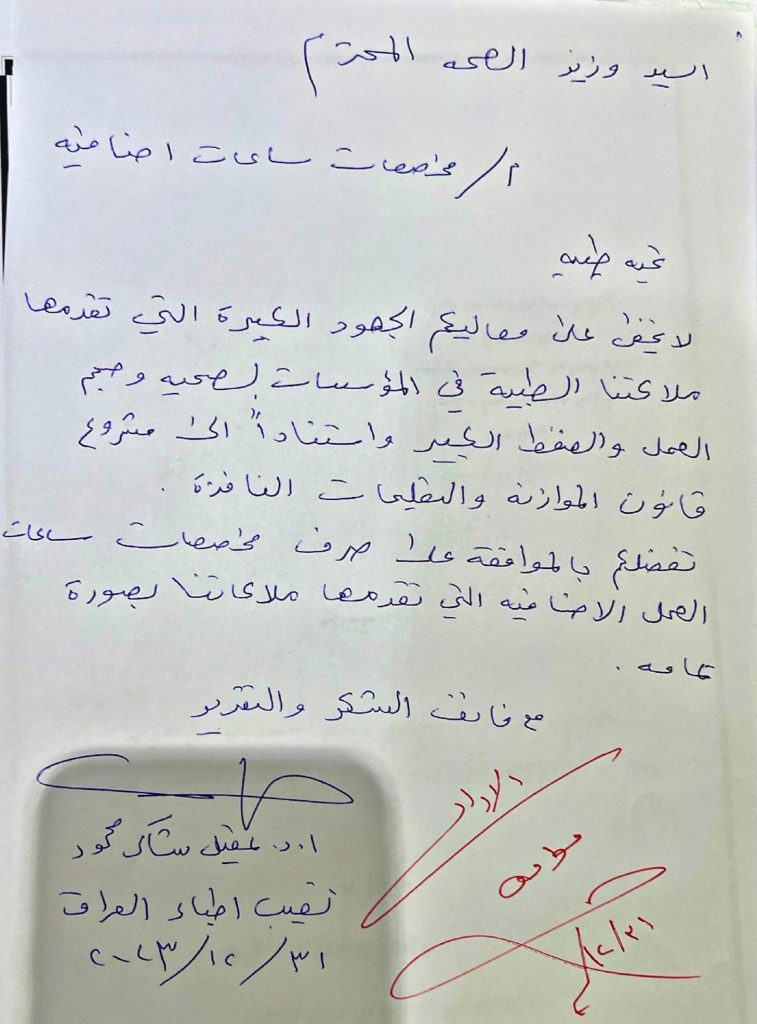 السيد وزير الصحه المحترم
م/ مخصصات ساعات اضافيه
تحيه طيبه
لا يخفى على معاليكم الجهود الكبيرة التي تقدمها
ملاكاتنا الطبية في المؤسسات الصحيه وحجم
العمل والضغط الكبير واستناداً الى مشروع
قانون الموازنه والتعليمات النافذة .
تفضلكم بالموافقة على صرف مخصصات ساعات
العمل الاضافيه التي تقدمها ملاكاتنا بصورة
عامه .
مع فائق الشكر والتقدير
ا.د. عقيل شاكر محمود
نقيب اطباء العراق
٢٠٢٣/١٢/٣١
الادارة
موافق
١٢/٣١